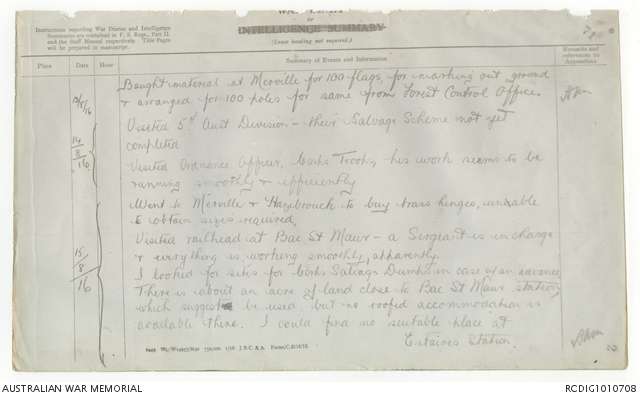 WAR DIARY
or
INTELLIGENCE SUMMARY
(Erase heading not required.)
Instructions regarding War Diaries and Intelligence
Summaries are contained in F. S. Regs., Part II.
and the Staff Manual respectively. Title Pages
will be prepared in manuscript.
Place Date Hour Summary of Events and Information Remarks and references to Appendices
Bought material at Merville for 100 flags for marking out ground
& arranged for 100 poles for same from Forest Control Officer
Visited 5th Aust Division - their Salvage Scheme not yet
completed
14/8/16
Visited Ordnance Officer, Corps Troops, his work seems to be
running smoothly & efficiently
Went to Merville & Hazebrouck to buy brass hinges, unable
to obtain sizes required.
Visited railhead at Bac St Maur - a Sergeant is in charge
15/8/16
& everything is working smoothly, apparently.
I looked for sites for Corps Salvage Dumps in case of an advance
There is about an acre of land close to Bac St Maur station,
which suggest be used, but no roofed accommodation is
available there. I could find no suitable place at
Estaires Station.
AUSTRALIAN WAR MEMORIAL
RCDIG1010708